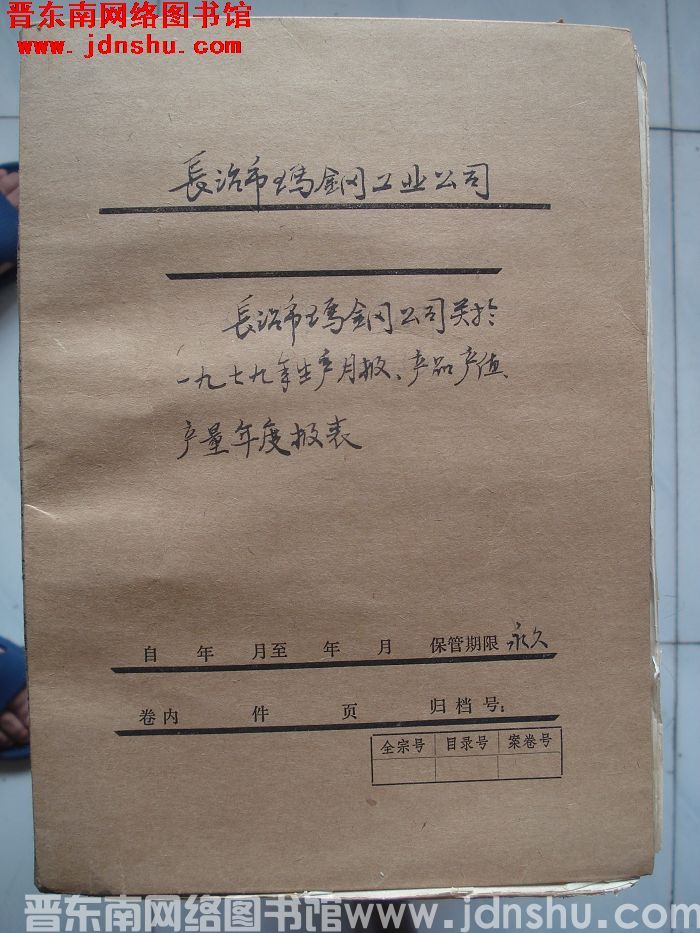 晋东南网络图书馆
www.jdnshu.com
長治市玛鋼工业公司
長治市玛鋼公司关於
一九七九年生产月报、产品产值
产量年度报表
自 年 月至 年 月 保管期限 永久
卷内 件 页 归档号:
全宗号 目录号 案卷号
晋东南网络图书馆www.jdnshu.com